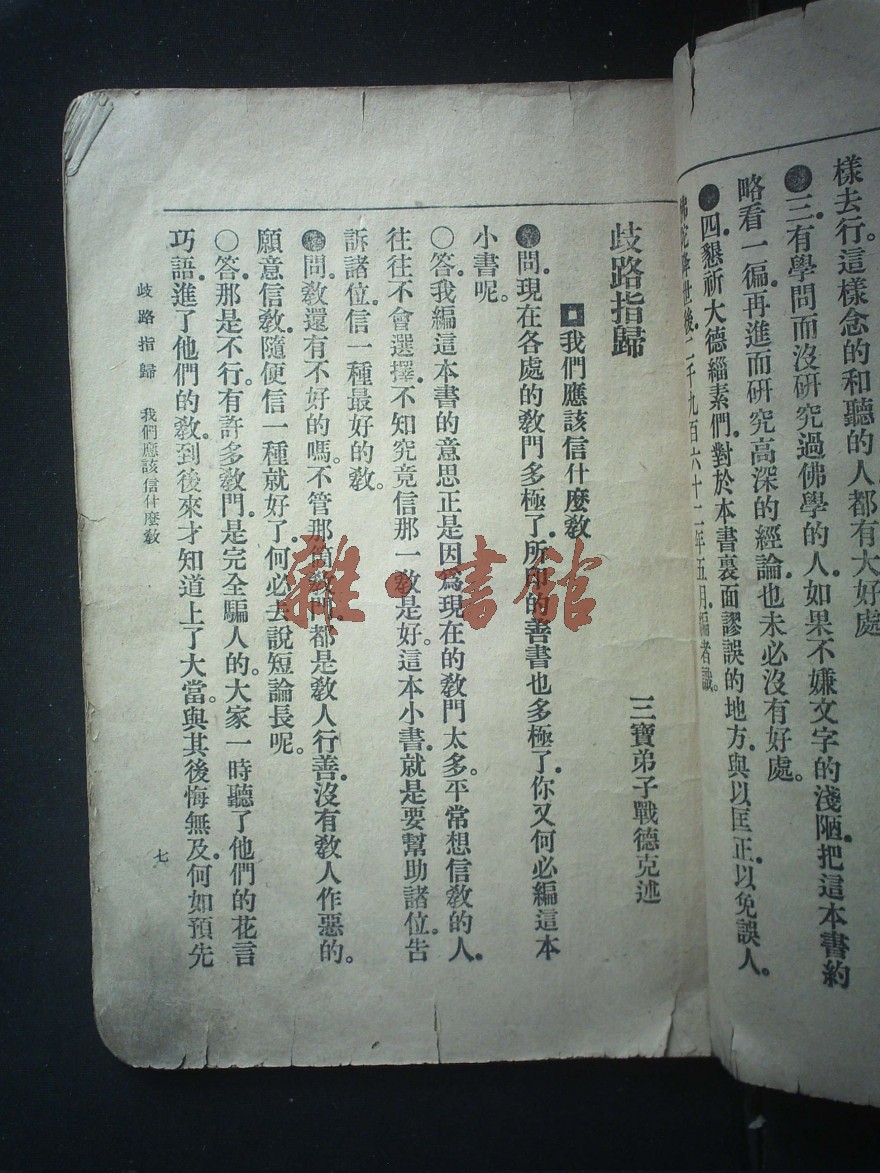 樣去行。這樣念的和聽的人都有大好處
●三.有學問而沒研究過佛學的人.如果不嫌文字的淺陋.把這本書約
略看一徧.再進而研究高深的經論也未必沒有好處。
●四.懇祈大德緇素們.對於本書裏面謬誤的地方.與以匡正.以免誤人。
佛陀降世後二千九百六十二年五月.編者識。
歧路指歸
三寶弟子戰德克述
■我們應該信什麼敎
●問.現在各處的敎門多極了.所印的善書也多極了.你又何必編這本
小書呢。
○答.我編這本書的意思正是因爲現在的敎門太多。平常想信敎的人.
往往不會選擇.不知究竟信那一敎是好。這本小書.就是要幫助諸位.告
訴諸位。信一種最好的敎。
●問.敎還有不好的嗎。不管那箇敎門.都是敎人行善.沒有敎人作惡的。
願意信敎.隨便信一種就好了.何必去說短論長呢。
○答.那是不行。有許多敎門.是完全騙人的。大家一時聽了他們的花言
巧語.進了他們的敎。到後來才知道上了大當。與其後悔無及.何如預先
歧路指歸 我們應該信什麼敎
七
雜·書館